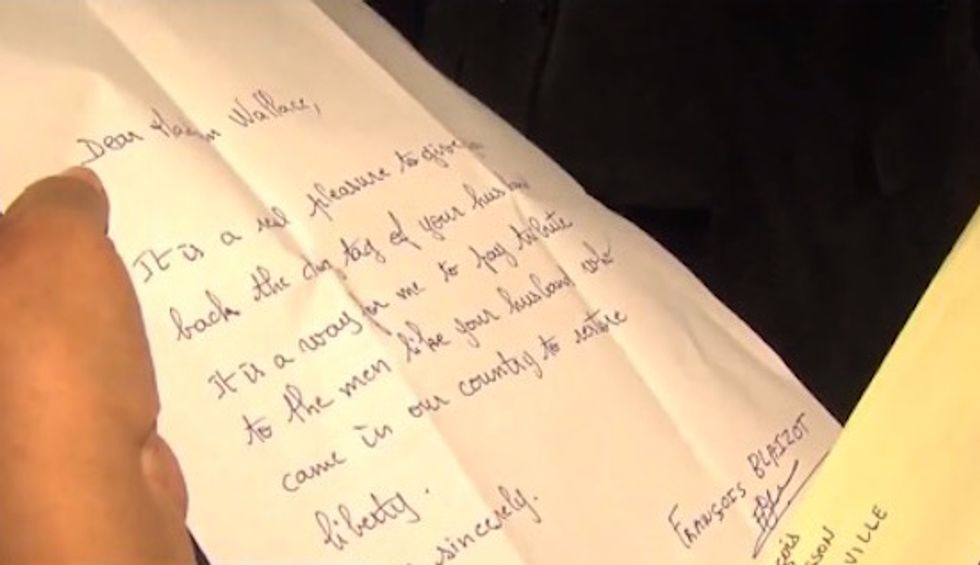 Dear Madam Wallace,
It is a real pleasure to give
back the dog tag of your husband
it is a way for me to pay tribute
to the men like your husband who
came in our country to restore
liberty.
sincerely.
FRANÇOIS BLAIZOT
VILLE